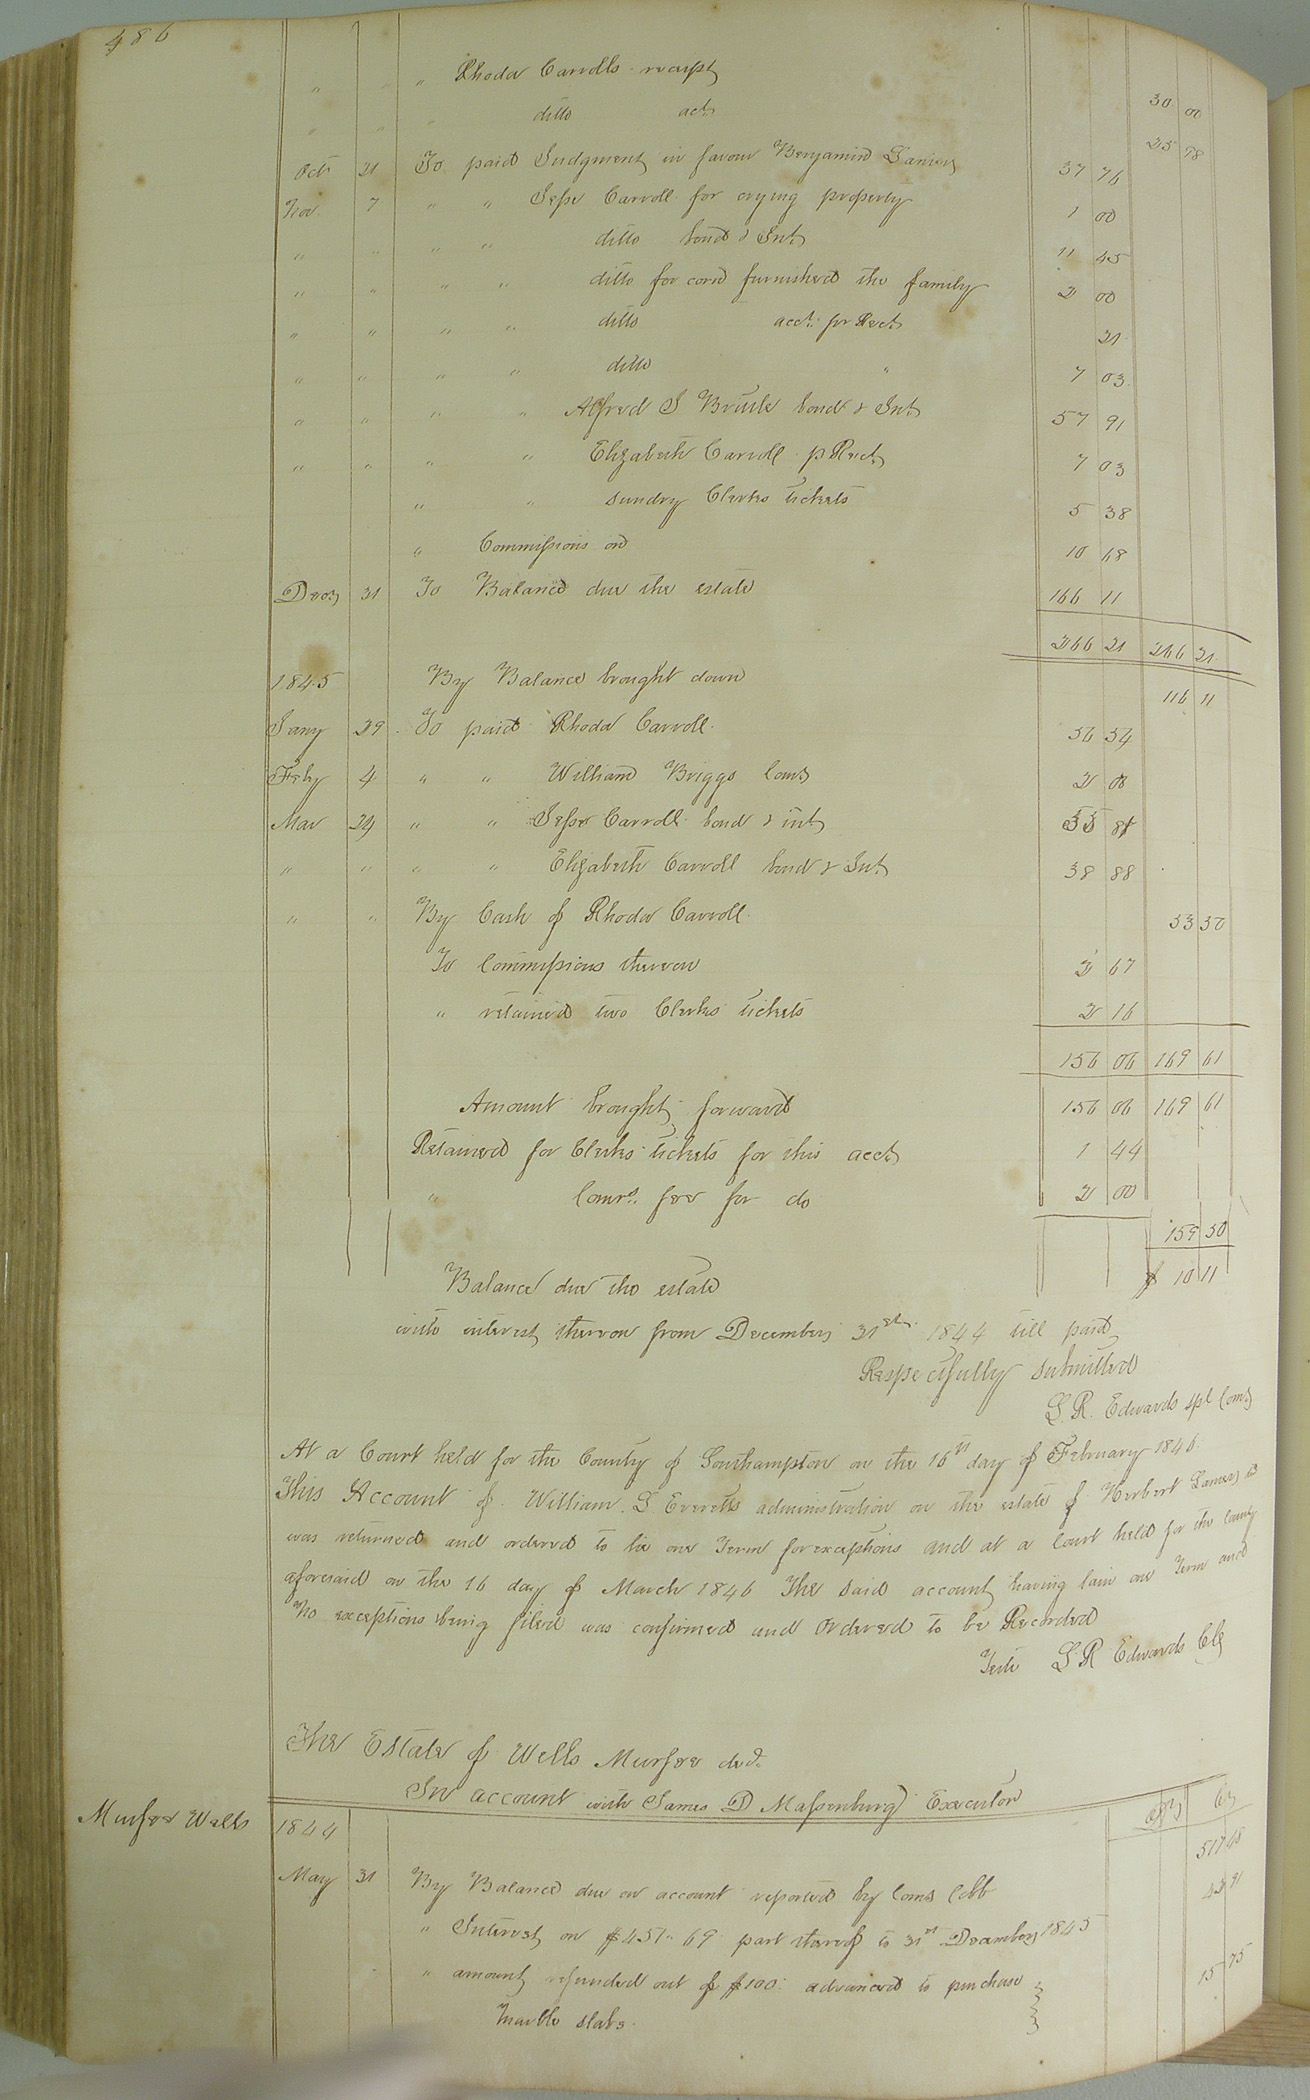 486
" " " Rhoda Carrolls receipt 30 00
" " " ditto act 25 78
Oct 21 To paid Judgment in favour Benjamin 37 76
Nov 7 " " Jesse Carroll for crying property 1 00
" " " " ditto bond & Int 11 45
" " " " ditto for corn furnished the family 2 00
" " " " ditto acct pr Rect 21
" " " " ditto " 7 03
" " " " Alfred J Britt bond & Int 57 91
" " " " Elizabeth Carroll p Rect 7 03
" " sundry Clerks tickets 5 38
" Commissions on 10 68
Decr 31 To Balance due the estate 166 11
266 21 266 21
1845 By Balance brought down 116 11
Jany 29 To paid Rhoda Carroll 56 54
Feby 4 " " William Briggs Comr 2 00
Mar 24 " " Jesse Carroll bond & int 53 81
" " " " Elizabeth Carroll bond & Int 38 88
" " By Cash of Rhoda Carroll 53 50
To Commissions thereon 2 67
" retained two Clerks tickets 2 16
156 06 169 61
Amount brought forward 156 06 169 61
Retained for Clerks tickets for this acct 1 44
" Comrs. fee for do 2 00
159 50
Balance due the estate $ 10 11
with interest thereon from December 31st 1844 till paid
Respectfully submitted
L. R. Edwards spl Comr
At a Court held for the County of Southampton on the 16th day of February 1846
This Account of William L Everetts administration on the estate of Herbert
was returned and ordered to lie one Term for exceptions and at a Court held for the County
aforesaid on the 16 day of March 1846 The said account having lain one Term and
No exceptions being filed was confirmed and Ordered to be Recorded
Teste L R Edwards Clk
The Estate of Wells Murfee decd.
In account with James D Massenburg Executor
Murfee Wells 1844 Dr Cr
May 31 By Balance due on account reported by Comr Cobb 517 48
" Interest on $451.69 part thereof to 31st December 1845 42 91
" amount refunded out of $100 advanced to purchase 15 75
marble slabs